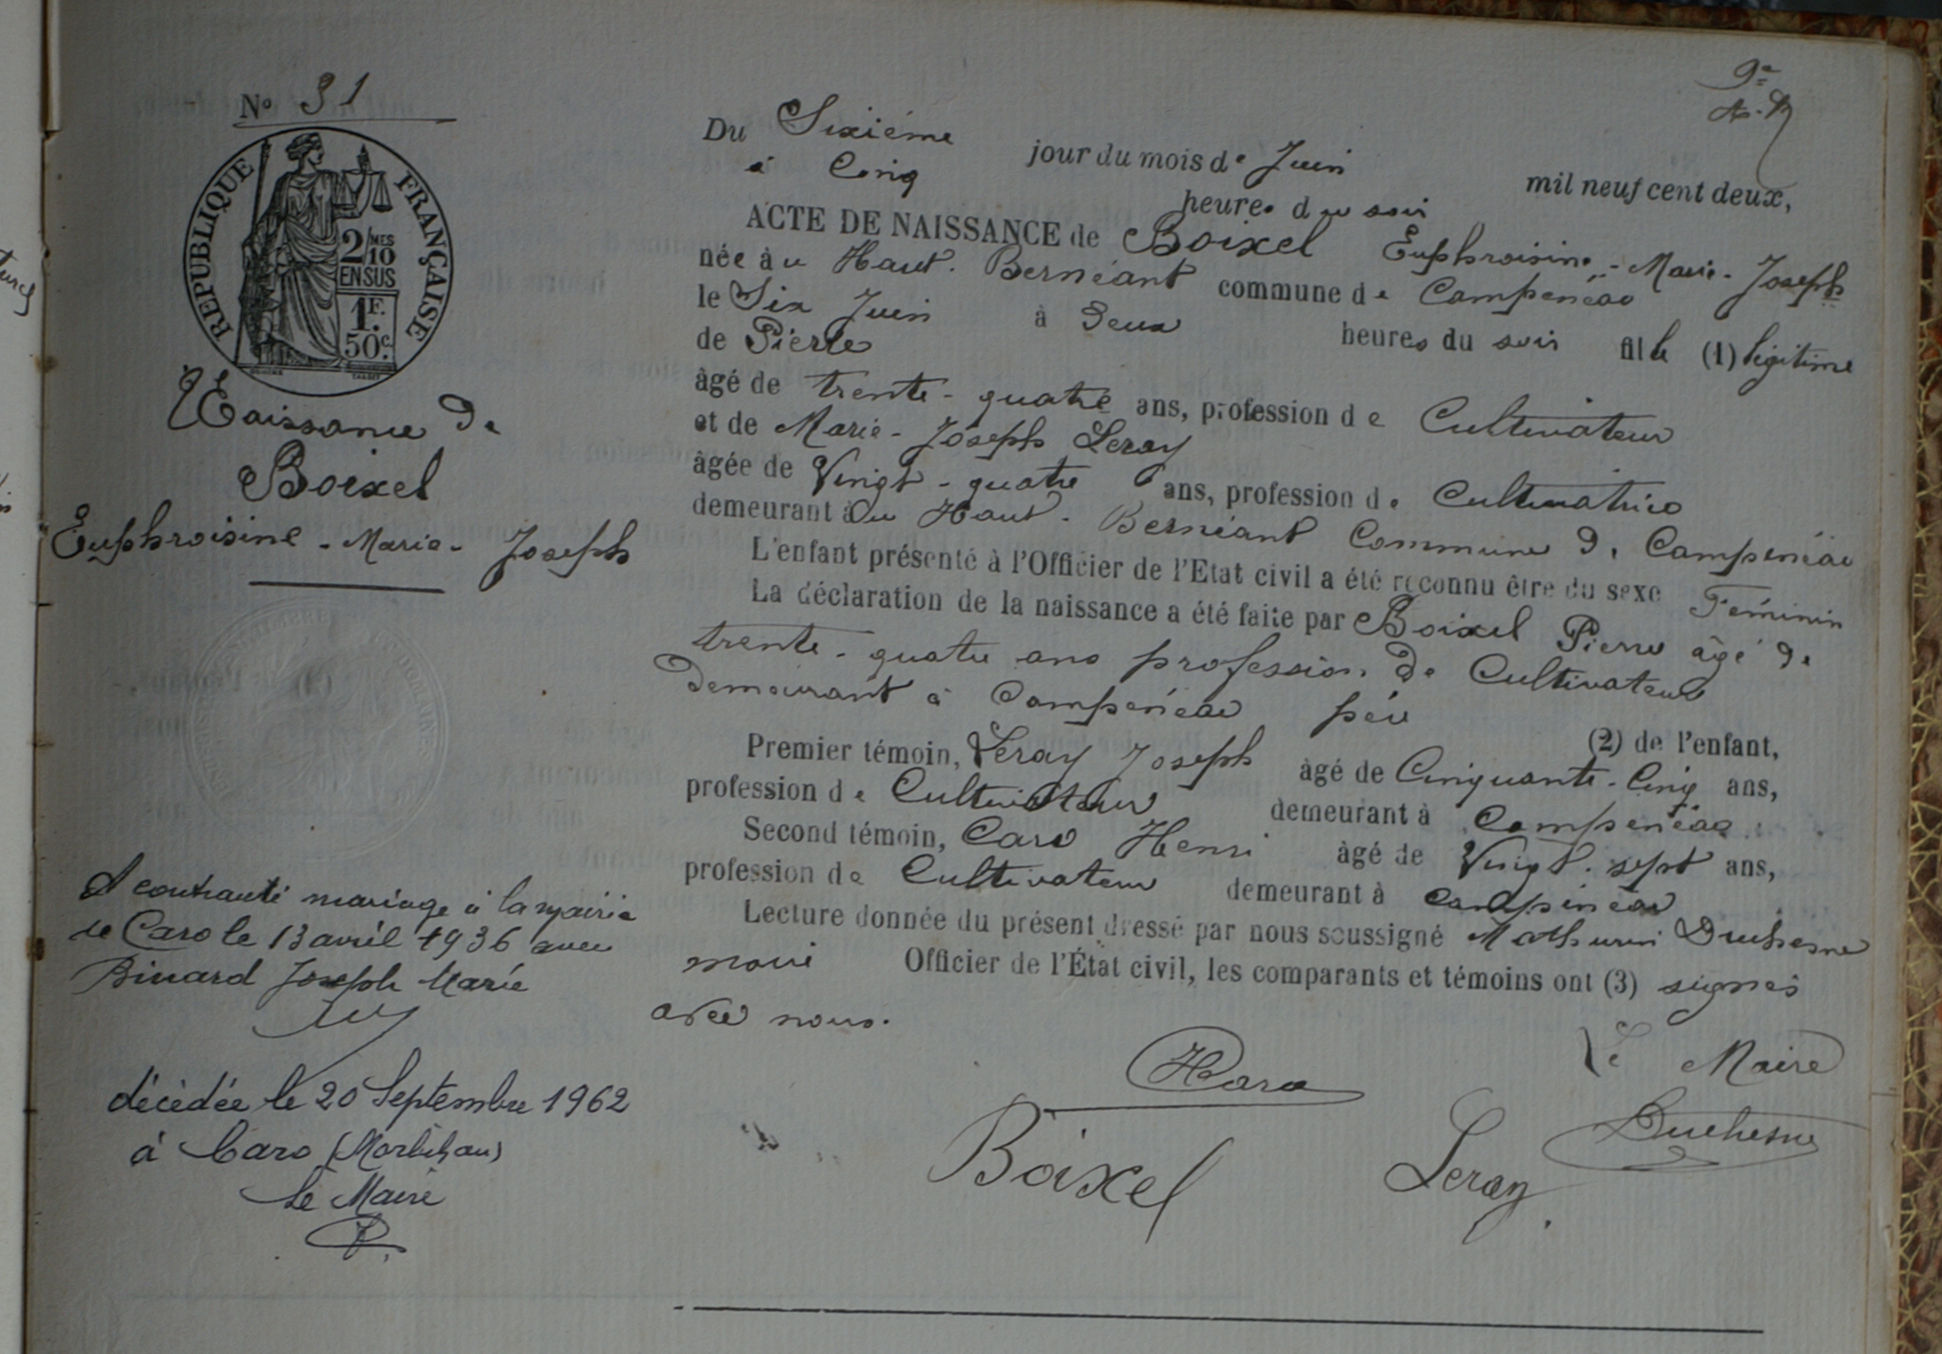 9e
Nº 31
RÉPUBLIQUE FRANÇAISE
2/10 MES
EN SUS
1F.
50c.
Naissance de
Boixel
Euphroisine - Marie - Joseph
A contracté mariage à la mairie
de Caro le 13 avril 1936 avec
Binard Joseph Marie
décédée le 20 Septembre 1962
à Caro (Morbihan)
Le Maire
Du Sixième jour du mois de Juin mil neuf cent deux,
à Cinq heures du soir
ACTE DE NAISSANCE de Boixel Euphroisine - Marie - Joseph
née à u Haut - Bernéant commune de Campénéac
le Six Juin à Deux heures du soir fille (1) légitime
de Pierre
âgé de trente - quatre ans, profession de Cultivateur
et de Marie - Joseph Leray
âgée de Vingt - quatre ans, profession de Cultivatrice
demeurant au Haut - Bernéant Commune de Campénéac
L'enfant présenté à l'Officier de l'Etat civil a été reconnu être du sexe Féminin
La déclaration de la naissance a été faite par Boixel Pierre âgé de
trente - quatre ans profession de Cultivateur
demeurant à Campénéac père (2) de l'enfant,
Premier témoin, Leray Joseph âgé de Cinquante - Cinq ans,
profession de Cultivateur demeurant à Campénéac
Second témoin, Caro Henri âgé de Vingt - sept ans,
profession de Cultivateur demeurant à Campénéac
Lecture donnée du présent dressé par nous soussigné Mathurin Duchesne
maire Officier de l'État civil, les comparants et témoins ont (3) signés
avec nous.
Le Maire
HCaro
Duchesne
Boixel
Leray